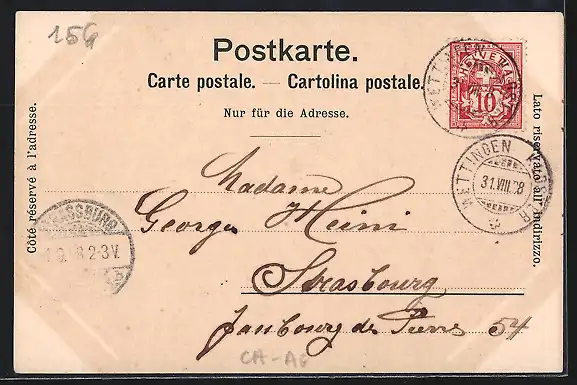 15G
Postkarte.
Carte postale. — Cartolina postale.
Nur für die Adresse.
Côté réservé à l'adresse.
Lato riservato all' indirizzo.
10
WETTINGEN
31.VIII.98
STRASSBURG
2-3V.
Madame
Georges Heimi
Strasbourg
faubourg de Pierre 54
CH-AG